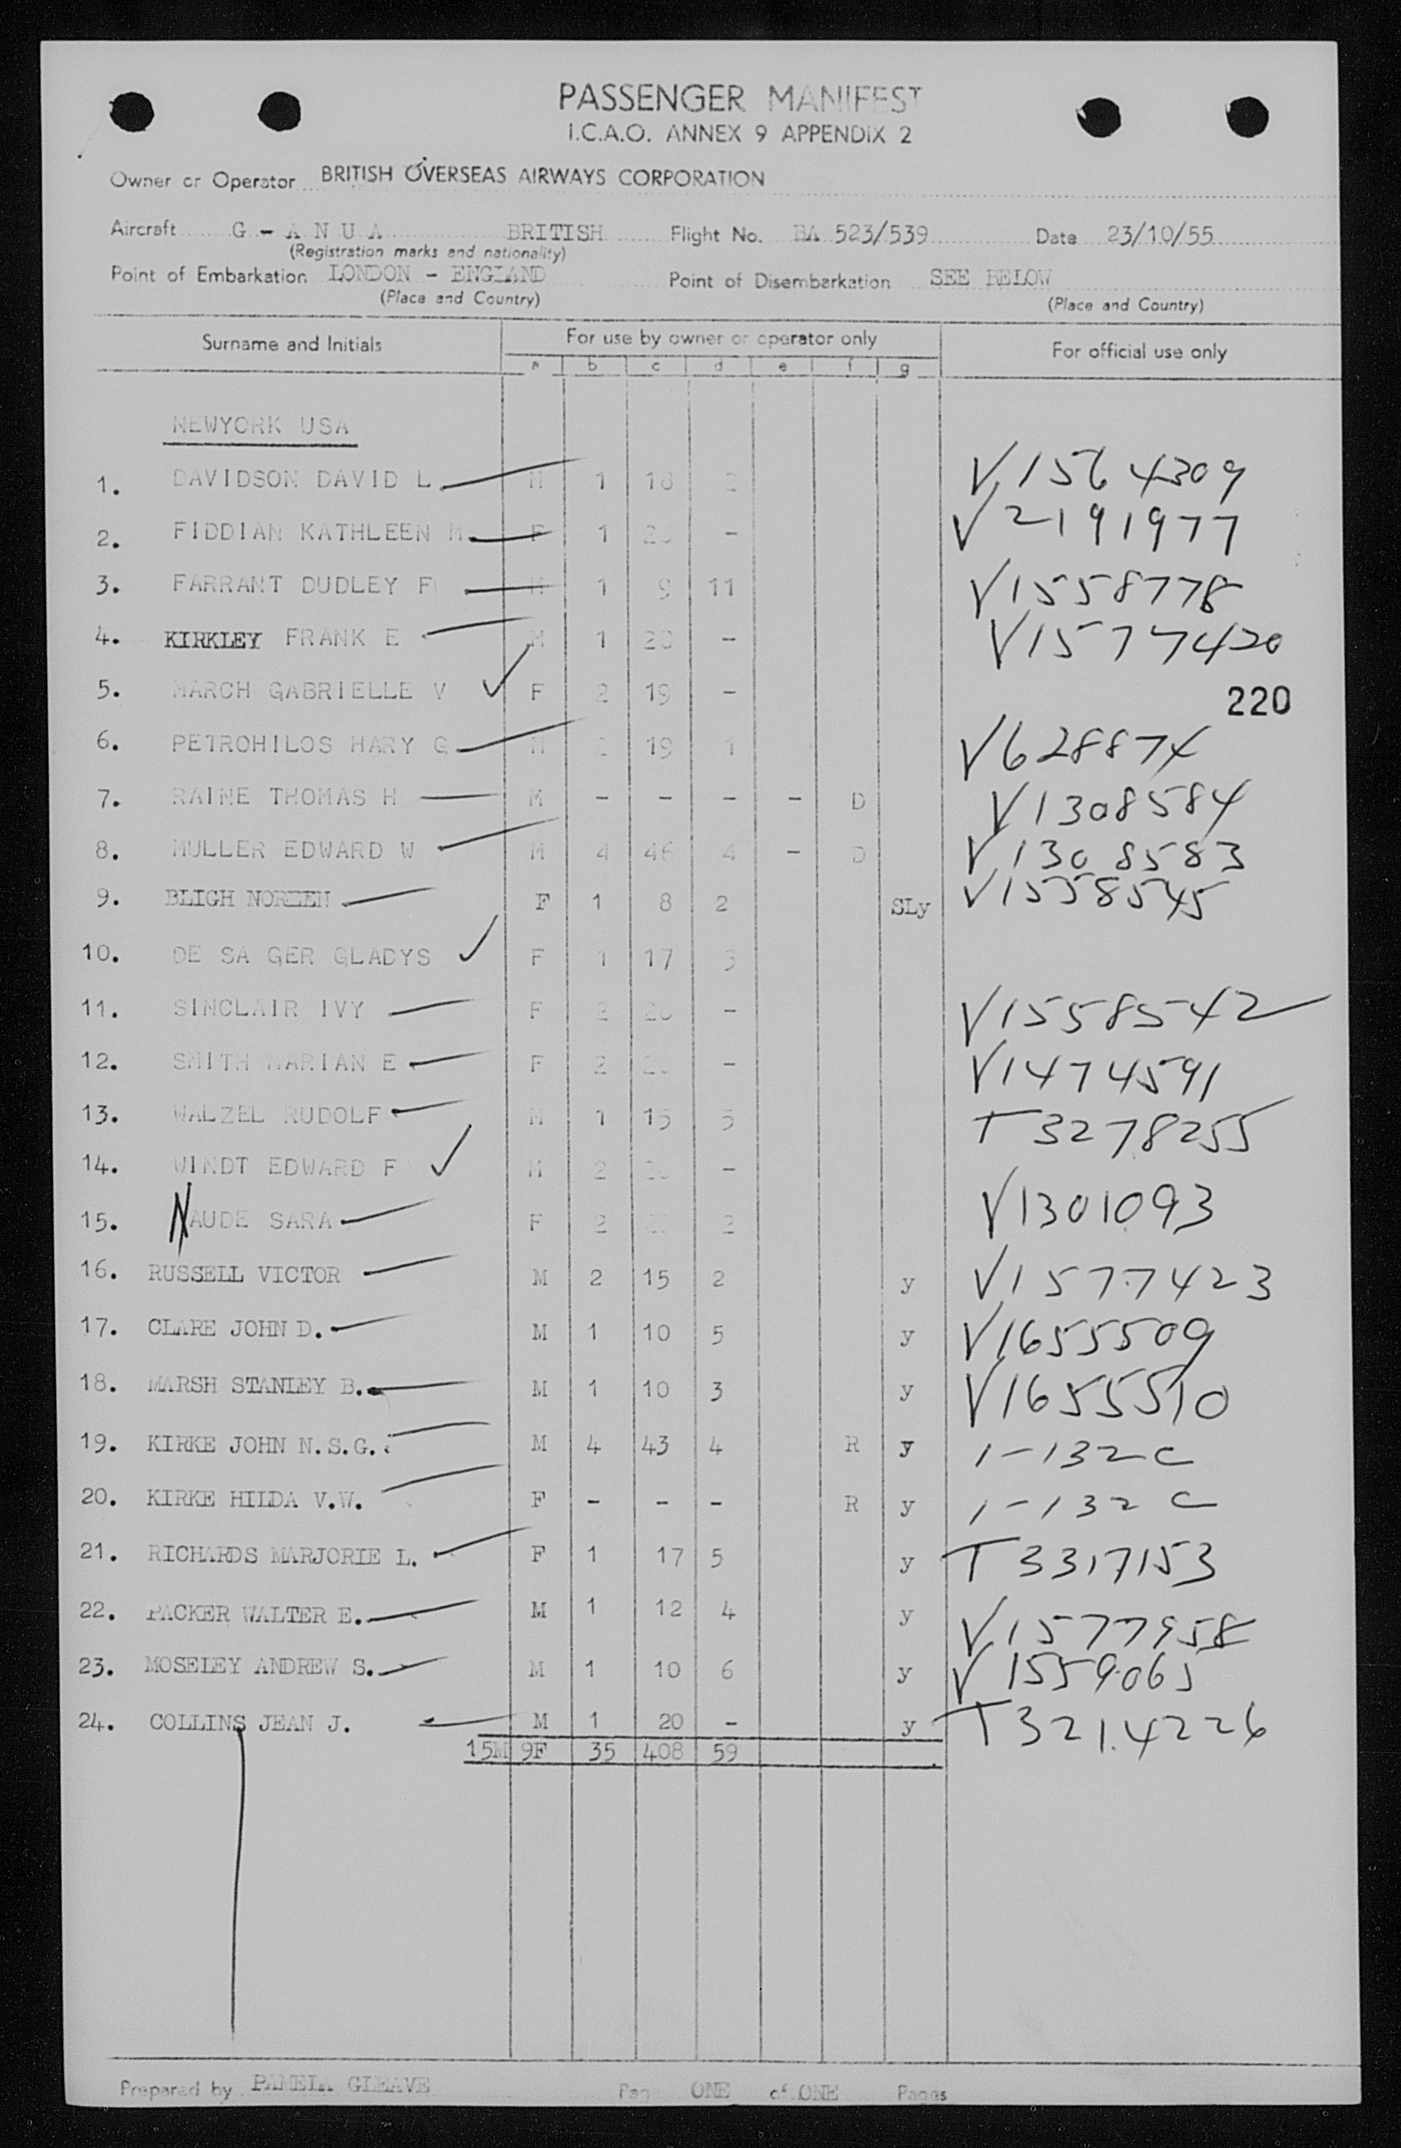 PASSENGER MANIFEST
I.C.A.O. ANNEX 9 APPENDIX 2
Owner or Operator BRITISH OVERSEAS AIRWAYS CORPORATION
Aircraft G - A N U A BRITISH Flight No. BA 523/539 Date 23/10/55
(Registration marks and nationality)
Point of Embarkation LONDON - ENGLAND Point of Disembarkation SEE BELOW
(Place and Country) (Place and Country)
Surname and Initials For use by owner or operator only For official use only
a b c d e f g
NEWYORK USA
1. DAVIDSON DAVID L M 1 18 2 V1564309
2. FIDDIAN KATHLEEN M F 1 - V2191977
3. FARRANT DUDLEY F M 1 9 11 V1558778
4. KIRKLEY FRANK E M 1 20 - V1577420
5. MARCH GABRIELLE V F 2 19 -
220
6. PETROHILOS HARY G M 2 19 1 V628874
7. RAINE THOMAS H M - - - - D V1308584
8. MULLER EDWARD W M 4 46 4 - D V1308583
9. BLIGH NOREEN F 1 8 2 SLy V1558545
10. DE SA GER GLADYS F 1 17 3
11. SINCLAIR IVY F 2 20 - V1558542
12. SMITH MARIAN E F 2 - V1474591
13. WALZEL RUDOLF M 1 15 5 T3278255
14. WINDT EDWARD F M 2 -
15. NAUDE SARA F 2 2 V1301093
16. RUSSELL VICTOR M 2 15 2 y V1577423
17. CLARE JOHN D. M 1 10 5 y V1655509
18. MARSH STANLEY B. M 1 10 3 y V1655510
19. KIRKE JOHN N.S.G. M 4 43 4 R y 1-132C
20. KIRKE HILDA V.W. F - - - R y 1-132 C
21. RICHARDS MARJORIE L. F 1 17 5 y T3317153
22. PACKER WALTER E. M 1 12 4 y V1577958
23. MOSELEY ANDREW S. M 1 10 6 y V1559065
24. COLLINS JEAN J. M 1 20 - y T3214226
15M 9F 35 408 59
Prepared by PAMELA GLEAVE Page ONE of ONE Pages